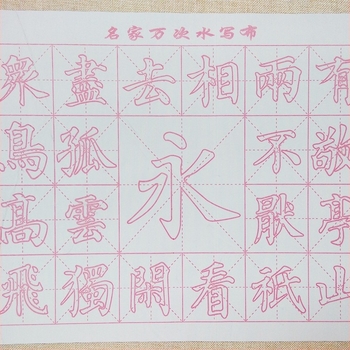 名家万次水写布
衆鳥髙飛
盡孤雲獨
去閑
永
相看
兩不厭祇
有敬亭山